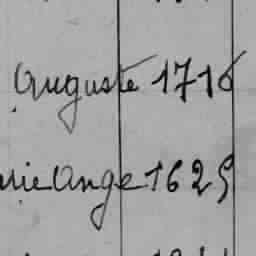 Auguste 1716
rie Ange 1625